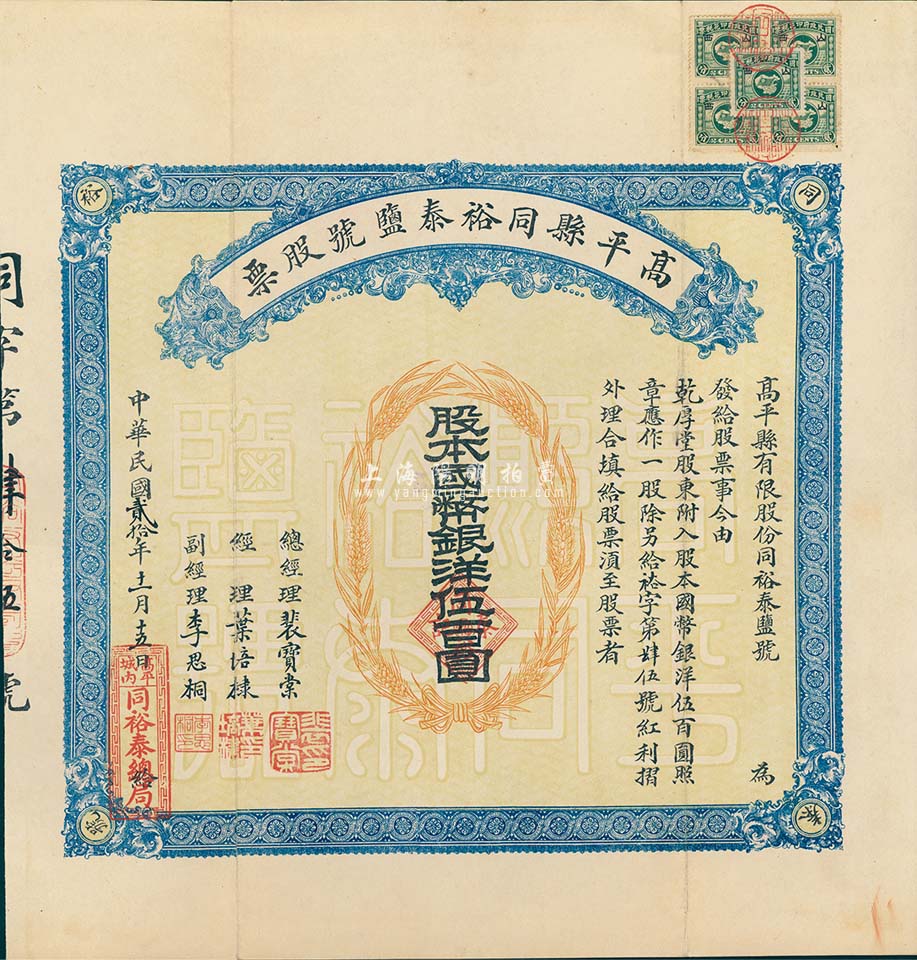 高平縣同裕泰鹽號股票
同
裕
泰
號
高平縣有限股份同裕泰鹽號 為
發給股票事今由
乾厚堂股東附入股本國幣銀洋伍百圓照
章應作一股除另給裕字第肆伍號紅利摺
外理合填給股票須至股票者
股本國幣銀洋伍百圓
總經理裴寶棠
經理葉培棣
副經理李思桐
中華民國貳拾年十一月十五日 給
高平城内
同裕泰總局
同字第肆拾伍號
上海陽明拍賣
www.yangmingauction.com